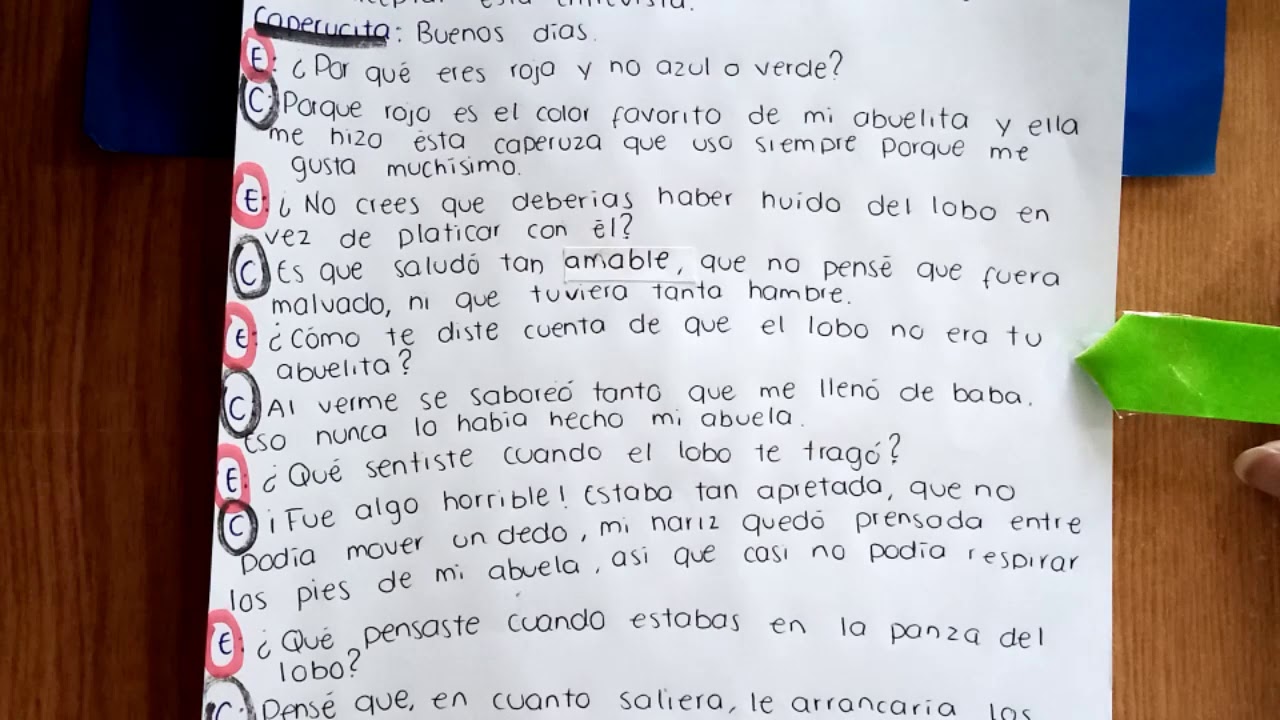 esta entrevista.
Caperucita: Buenos días.
E: ¿Por qué eres roja y no azul o verde?
C: Porque rojo es el color favorito de mi abuelita y ella
me hizo ésta caperuza que uso siempre porque me
gusta muchísimo.
E: ¿No crees que deberías haber huido del lobo en
vez de platicar con él?
C: Es que saludó tan amable, que no pensé que fuera
malvado, ni que tuviera tanta hambre.
E: ¿Cómo te diste cuenta de que el lobo no era tu
abuelita?
C: Al verme se saboreó tanto que me llenó de baba.
Eso nunca lo había hecho mi abuela.
E: ¿Qué sentiste cuando el lobo te tragó?
C: ¡Fue algo horrible! Estaba tan apretada, que no
podía mover un dedo, mi nariz quedó prensada entre
los pies de mi abuela, así que casi no podía respirar
E: ¿Qué pensaste cuando estabas en la panza del
lobo?
C: Pensé que, en cuanto saliera, le arrancaría los